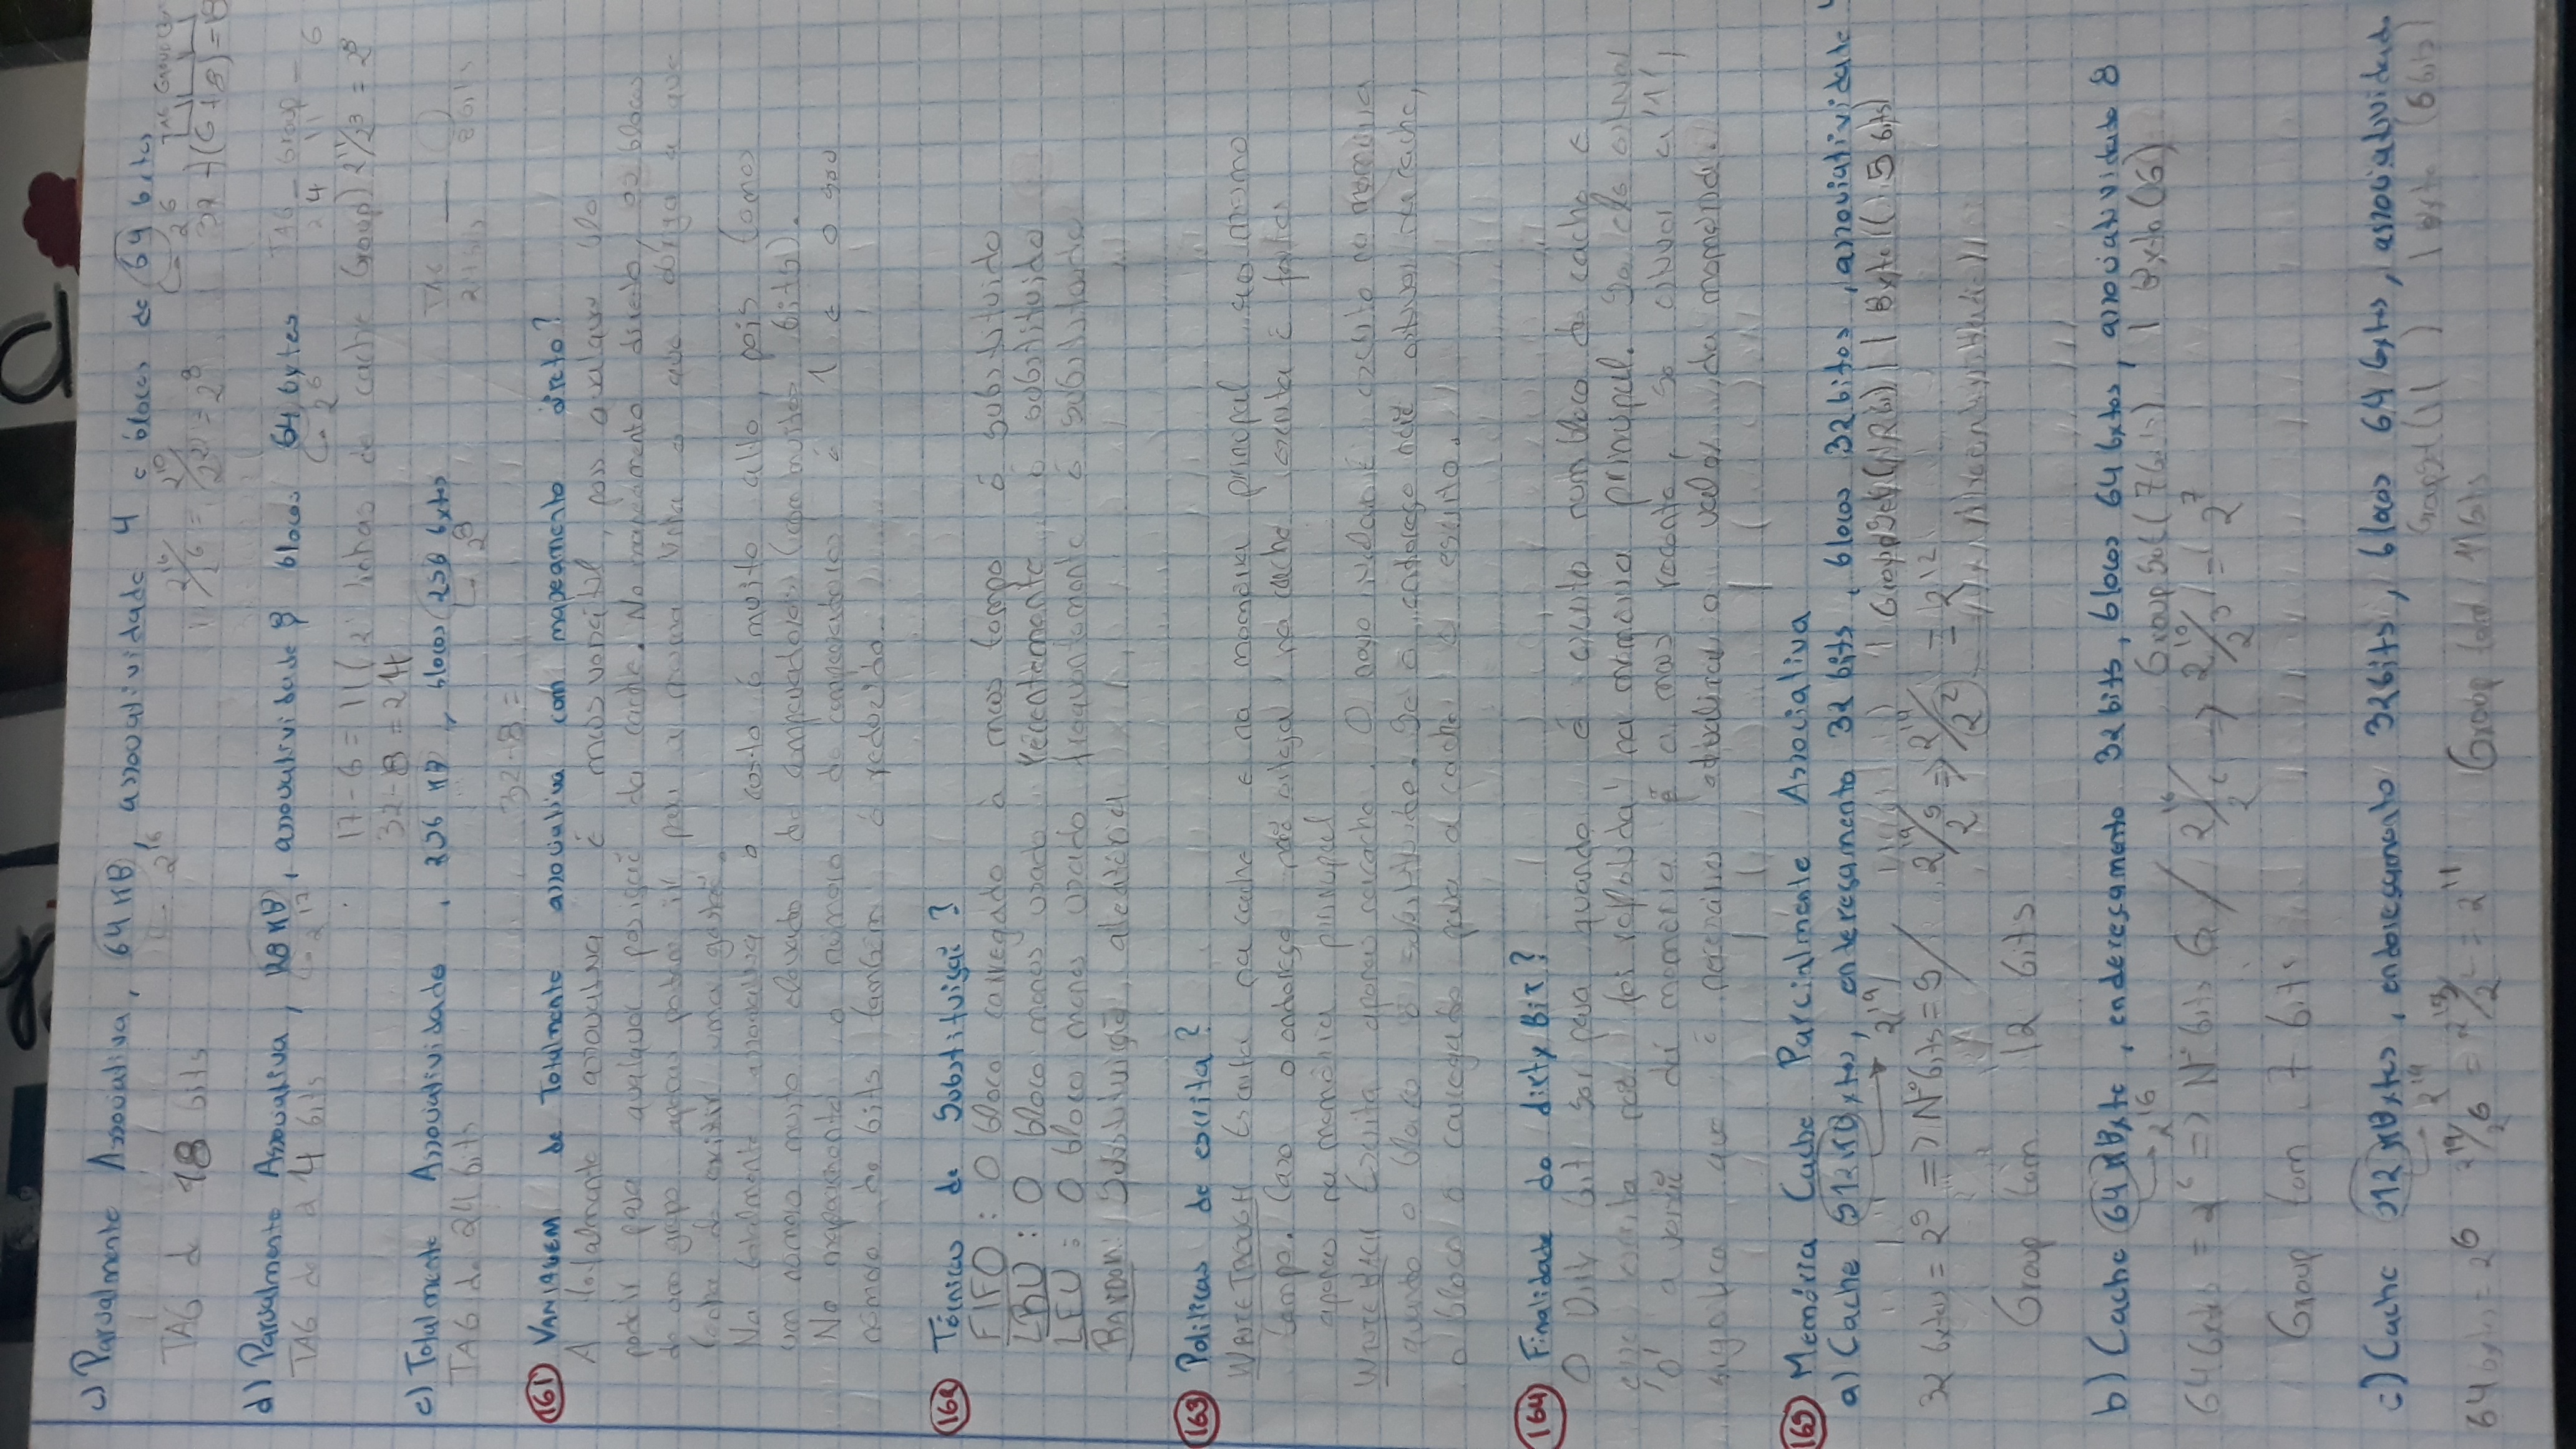 c) Parcialmente Associativa, 64 KB, associatividade 4 e blocos de 64 bytes
TAG de 18 bits 2^16 2^16/2^6 = 2^10/2^2 = 2^8 2^6 TAG Group 32-(6+8)=18
d) Parcialmente Associativa, 128 KB, associatividade 8 blocos 64 bytes TAG Group
TAG de 4 bits 2^17 2^6 24 11 6
17-6=11 (2 linhas de cache Group) 2^11/2^3 = 2^8
32-8=24
e) Totalmente Associatividade, 256 KB, blocos 256 bytes TAG
TAG de 24 bits 2^8 24 bits 8 bits
32-8=
161 VANTAGEM de Totalmente associativa com mapeamento direto?
A totalmente associativa é mais versátil, pois qualquer
pode ir para qualquer posição da cache. No mapeamento direto, os blocos
de um grupo apenas podem ir para a mesma linha o que obriga a que
tenha de existir uma gestão.
Na totalmente associativa o custo é muito alto, pois temos
um número muito elevado de comparadores (com muitos bits).
No mapeamento o número de comparadores é 1 e o seu
número de bits também é reduzido.
162 Técnicas de Substituisão?
FIFO: O bloco carregado à mais tempo é substituido
LRU: O bloco menos usado recentemente é substituido
LFU: O bloco menos usado frequentemente é substituido
RANDOM: Substituição aleatória
163 Politicas de escrita?
WRITE TROUGH Escrita na cache e na memória principal ao mesmo
tempo. Caso o endereço não esteja na cache escrita é feita
apenas na memória principal
WRITE BACK Escrita apenas na cache. O novo valor é escrito na memória
quando o bloco é substituido. Se o endereço não estiver na cache,
o bloco é carregado para a cache e escrito.
164 Finalidade do dirty Bit?
O Dirty bit serve para quando é escrito num bloco de cache e
escrita não foi refletida na memória principal. Se ele estiver
'0' a versão da memória é a mais recente, se estiver a '1',
significa que é necessário actualizar o valor da memória.
165 Memória Cache Parcialmente Associativa
a) Cache 512 KBytes, enderesamento 32 bits, blocos 32 bitos, associatividade 4
2^19 Group Set (12 bits) | Byte (5 bits)
32 bytes = 2^5 => Nº bits = 5 / 2^19/2^5 => 2^14/2^2 = 2^12
Group tem 12 bits
b) Cache 64 KByte, enderesamento 32 bits, blocos 64 bytes, associatividade 8
2^16 Group Set (7 bits) | Byte (6)
64 bytes = 2^6 => Nº bits 6 / 2^16/2^6 => 2^10/2^3 = 2^7
Group tem 7 bits
c) Cache 512 KBytes, enderesamento 32 bits, blocos 64 bytes, associatividade
2^19 Group Set (11) | Byte (6 bits)
64 bytes = 2^6 2^19/2^6 = 2^13/2^2 = 2^11 Group tem 11 bits